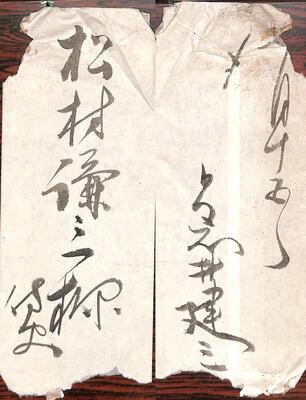 松村謙三様
侍史
月十五日
〆
井建三